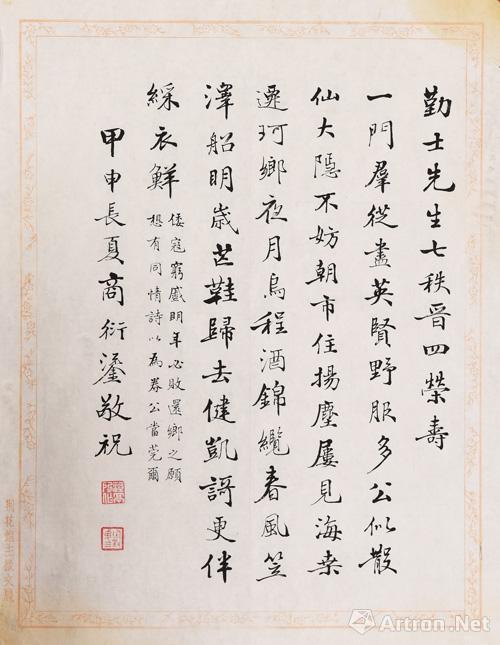 勤士先生七秩晋四榮壽
一門羣從盡英賢野服多公似散
仙大隱不妨朝市住揚塵屢見海桒
遷珂鄉夜月烏程酒錦纜春風笠
澤船明歲芒鞵歸去健凱謌更伴
綵衣鮮
倭寇窮蹙明年必敗還鄉之願
想有同情詩以為券公當莞爾
甲申長夏商衍鎏敬祝
Artron.Net